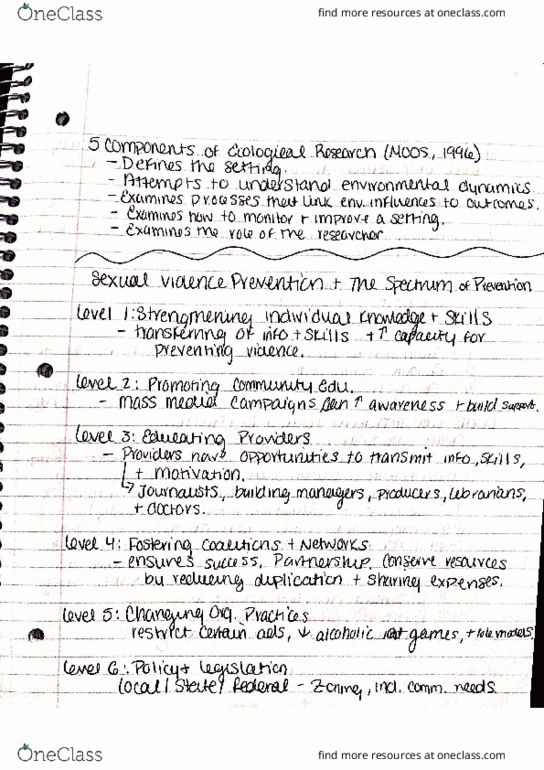 OneClass
find more resources at oneclass.com
5 Components of Ecological Research (MOOS, 1996)
- Defines the setting.
- Attempts to understand environmental dynamics
- Examines processes that link env. influences to outcomes.
- Examines how to monitor + improve a setting.
- Examines the role of the researcher
Sexual Violence Prevention + The Spectrum of Prevention
Level 1: Strengthening individual knowledge + skills
- transferring of info + skills + ↑ capacity for
preventing violence.
Level 2: Promoting Community edu.
- mass media campaigns can ↑ awareness + build support.
Level 3: Educating Providers
- Providers have opportunities to transmit info, skills,
+ motivation.
↳ Journalists, building managers, producers, librarians,
+ doctors.
Level 4: Fostering Coalitions + Networks
- ensures success. Partnership conserve resources
by reducing duplication + sharing expenses.
Level 5: Changing Org. Practices
restrict certain ads, ↓ alcoholic games, + role models.
Level 6: Policy + legislation
Local / State / Federal - Zoning, incl. comm. needs.
OneClass
find more resources at oneclass.com